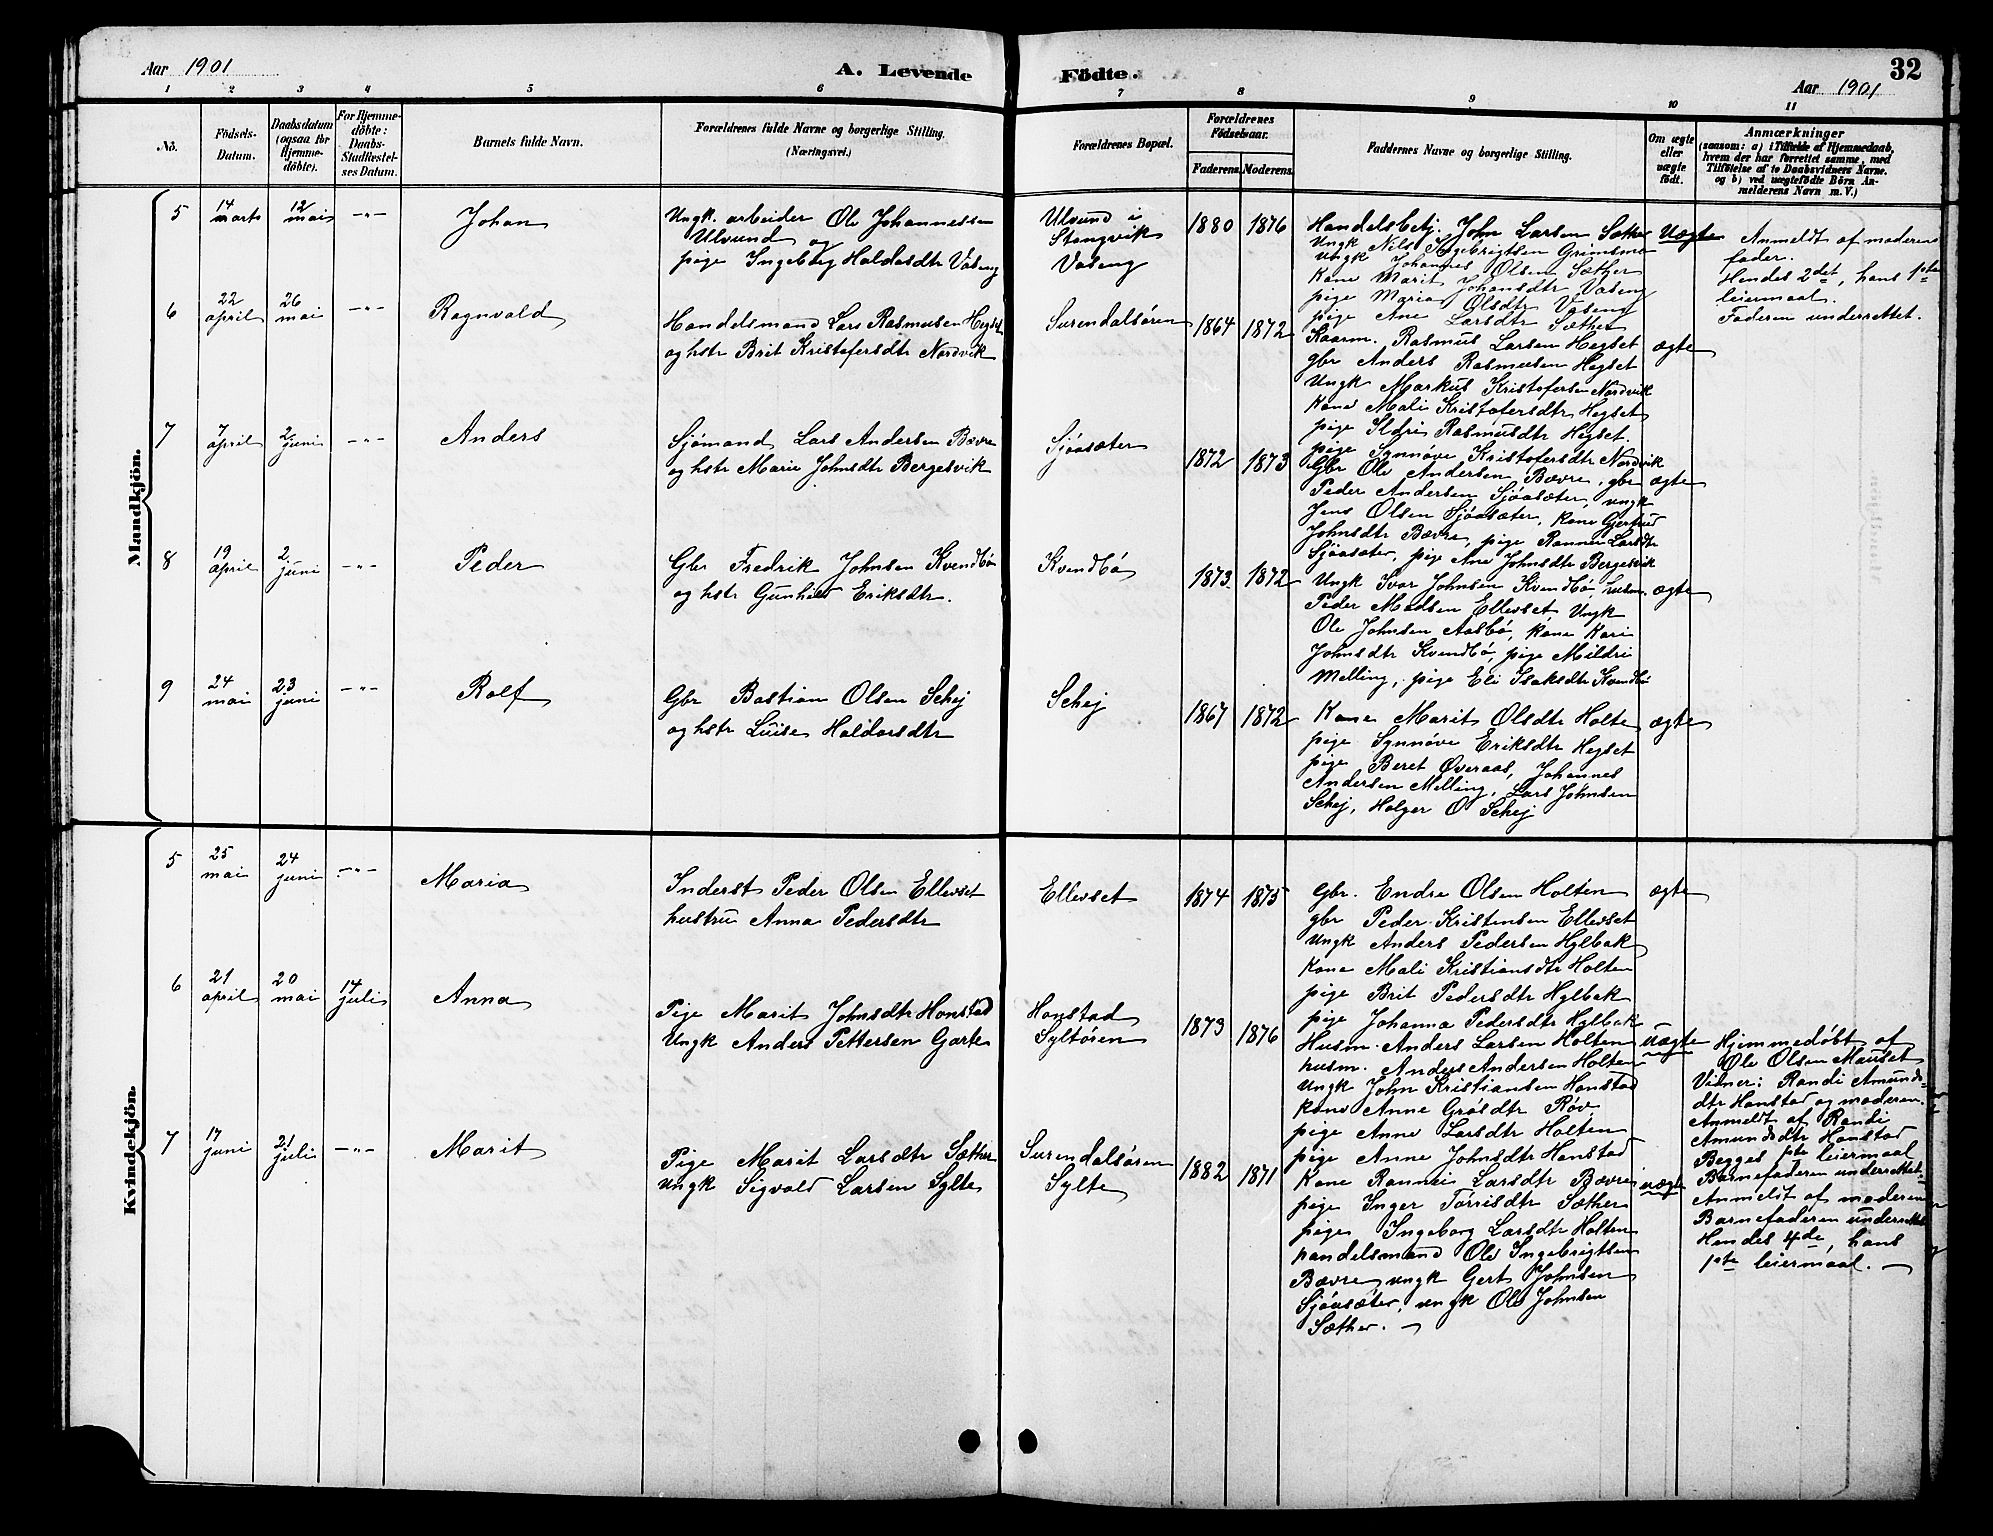 Aar 1901
A. Levende Födte.
32
Aar 1901
1 2 3 4 5 6 7 8 9 10 11
No.
Födsels-Datum.
Daabsdatum (ogsaa for Hjemme-döbte).
For Hjemme-döbte: Daabs-Stadfæstel-ses Datum.
Barnets fulde Navn.
Forældrenes fulde Navne og borgerlige Stilling.
(Næringsvei.)
Forældrenes Bopæl.
Forældrenes Födselsaar.
Faderens. Moderens.
Faddernes Navne og borgerlige Stilling.
Om ægte eller uægte födt.
Anmærkninger
(saasom: a) i Tilfælde af Hjemmedaab,
hvem der har forrettet samme, med
Tilföielse af to Daabsvidners Navne.
og b) ved uægtefödte Börn An-
melderens Navn m. V.)
Mandkjön.
5
14 marts
12 mai
-"-
Johan
Ungk. arbeider Ole Johannessen
Ulvund og
pige Ingeborg Haldosdtr Vaseng
Ulvund i
Stangvik
Vaseng
1880 1876
Handelsbetj. John Larsen Sæther
Ungk Nils Ingebrigtsen Grimsmo
Ungk Johannes Olsen Sæther
Kone Marit Johansdtr Vaseng
pige Maria Olsdtr Vaseng
pige Ane Larsdtr Sæther
Uægte
Anmeldt af moderens
fader.
Hendes 2det, hans 1ste
leiermaal.
Faderen underrettet.
6
22 april
26 mai
-"-
Ragnvald
Handelsmand Lars Rasmusen Hegset
og hstr Brit Kristofersdtr Nordvik
Surendalsören
1864 1872
Kaarm. Rasmus Larsen Hegset
gbr Anders Rasmusen Hegset
Ungk Markus Kristofersen Nordvik
Kone Mali Kristofersdtr Hegset
pige Sldri Rasmusdtr Hegset.
pige Synnöve Kristofersdtr Nordvik
ægte
7
7 april
2 juni
-"-
Anders
Sjömand Lars Andersen Bævre
og hstr Marie Johnsdtr Bergesvik
Sjöasæter
1872 1873
Gbr Ole Andersen Bævre, gbr
Peder Andersen Sjöasæter, ungk
Jens Olsen Sjöasæter, kone Gjertrud
Johnsdtr Bævre, pige Rannei Larsdtr
Sjöasæter, pige Ane Johnsdtr Bergesvik
ægte
8
19 april
2 juni
-"-
Peder
Gbr Fredrik Johnsen Kvendbö
og hstr Gunhild Eriksdtr.
Kvendbö
1873 1872
Ungk Ivar Johnsen Kvendbö, husm.
Peder Madsen Ellevset Ungk
Ole Johnsen Aasbö, kone Kari
Johnsdtr Kvendbö, pige Mildri
Melling, pige Eli Isaksdtr Kvendbö
ægte
9
24 mai
23 juni
-"-
Rolf
Gbr Bastian Olsen Schej
og hstr Luise Haldorsdtr
Schej
1867 1872
Kone Marit Olsdtr Holte
pige Synnöve Eriksdtr Hegset
pige Beret Överaas, Johannes
Andersen Melling, Lars Johnsen
Schej, Holger O Schej
ægte
Kvindekjön.
5
25 mai
24 juni
-"-
Maria
Inderst Peder Olsen Ellevset
hustru Anna Pedersdtr
Ellevset
1874 1875
Gbr. Endre Olsen Holten
gbr Peder Kristensen Ellevset
Ungk Anders Pedersen Hylbak
Kone Mali Kristiansdtr Holten
pige Brit Pedersdtr Hylbak
pige Johanna Pedersdtr Hylbak
ægte
6
21 april
20 mai
14 juli
Anna
Pige Marit Johnsdtr Honstad
Ungk Anders Pettersen Garte
Honstad
Syltören
1873 1876
Husm. Anders Larsen Holten
husm. Anders Andersen Holten
Ungk John Kristiansen Honstad
kone Anne Gröisdtr Röv
pige Anne Larsdtr Holten
pige Anne Johnsdtr Honstad
uægte
Hjemmedöbt af
Ole Olsen Mauset
Vidner: Randi Amunds-
dtr Honstad og moderen.
Anmeldt af Randi
Amundsdtr Honstad
Begges 1ste leiermaal
Barnefaderen underrettet.
7
17 juni
21 juli
-"-
Marit
Pige Marit Larsdtr Sæther
Ungk Sigvald Larsen Sylte
Surendalsören
Sylte
1882 1871
Kone Rannei Larsdtr Bævre
pige Inger Torrisdtr Sæther
pige Ingeborg Larsdtr Holten
handelsmand Ole Ingebrigtsen
Bævre, ungk Gert Johnsen
Sjöasæter, ungk Ole Johnsen
Sæther.
uægte
Anmeldt af moderen
Barnefaderen underrettet
Hendes 4de, hans
1ste leiermaal.